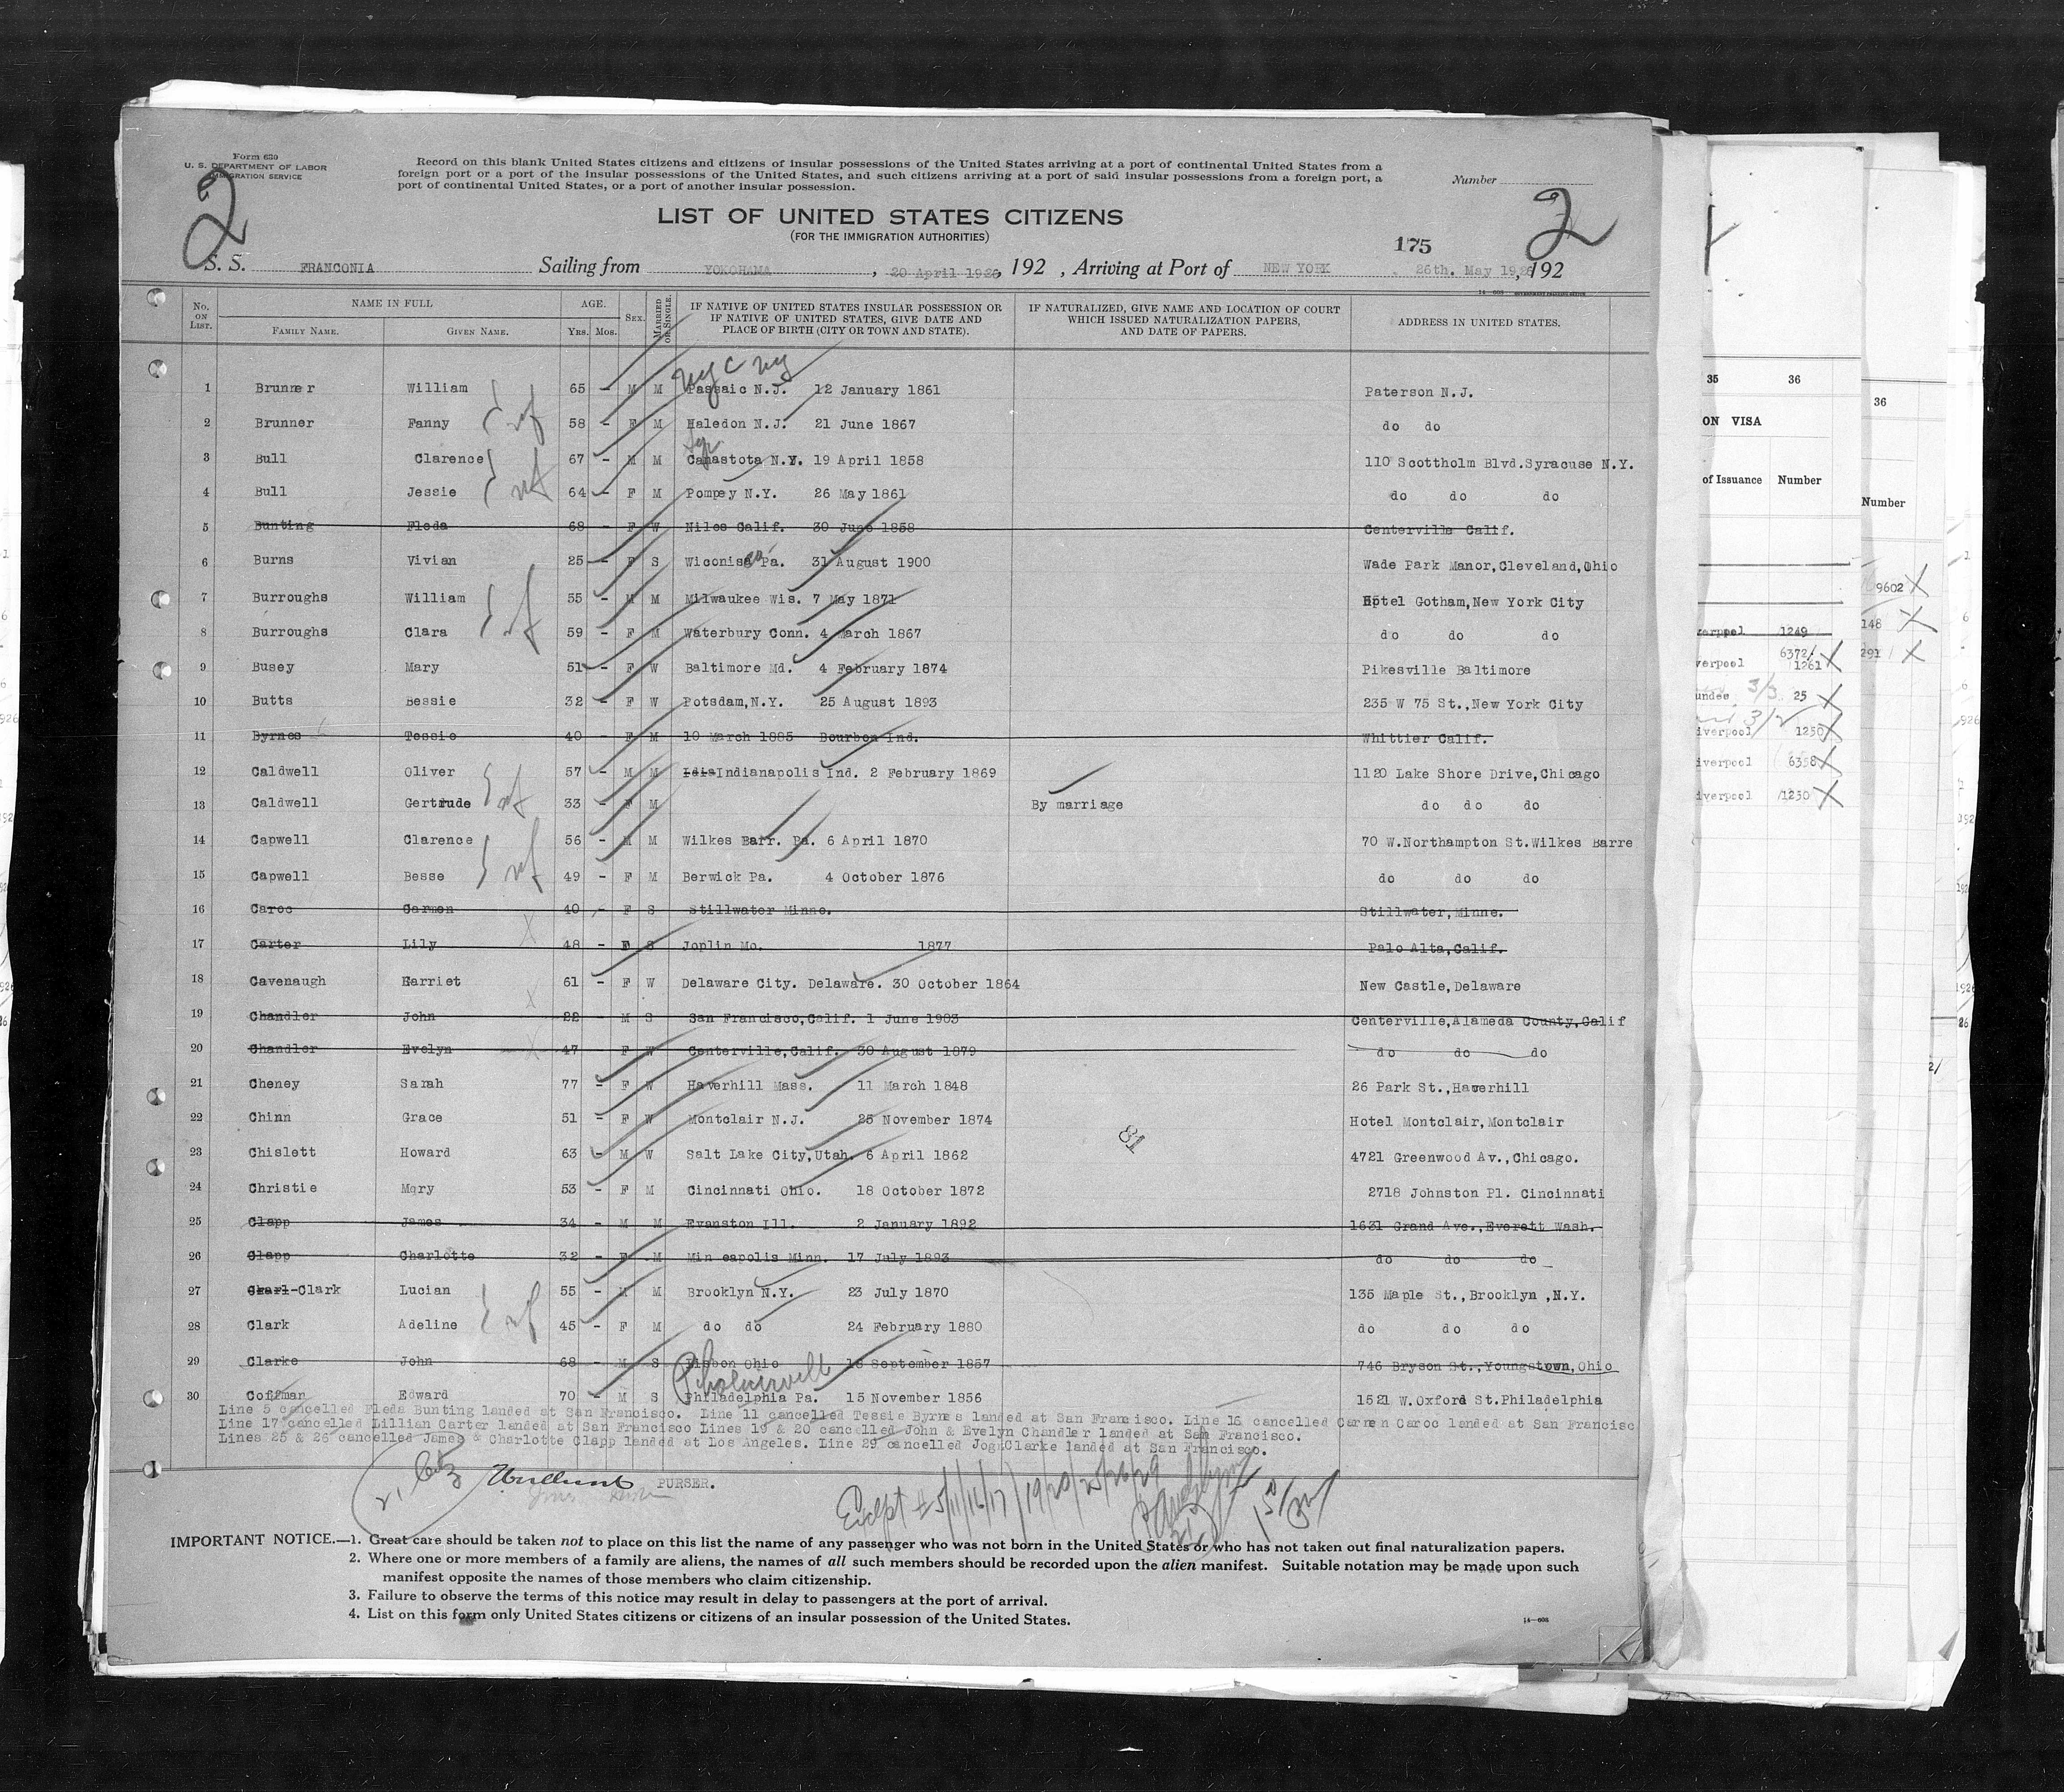 Form 630
U. S. DEPARTMENT OF LABOR
IMMIGRATION SERVICE
Record on this blank United States citizens and citizens of insular possessions of the United States arriving at a port of continental United States from a
foreign port or a port of the insular possessions of the United States, and such citizens arriving at a port of said insular possessions from a foreign port, a
port of continental United States, or a port of another insular possession.
Number
2
2
LIST OF UNITED STATES CITIZENS
(FOR THE IMMIGRATION AUTHORITIES)
175
S. S. FRANCONIA Sailing from YOKOHAMA, 20 April 1926, 192 , Arriving at Port of NEW YORK 26th. May 1926, 192
No. ON LIST. NAME IN FULL FAMILY NAME. GIVEN NAME. AGE. Yrs. Mos. SEX. MARRIED OR SINGLE. IF NATIVE OF UNITED STATES INSULAR POSSESSION OR IF NATIVE OF UNITED STATES, GIVE DATE AND PLACE OF BIRTH (CITY OR TOWN AND STATE). IF NATURALIZED, GIVE NAME AND LOCATION OF COURT WHICH ISSUED NATURALIZATION PAPERS, AND DATE OF PAPERS. ADDRESS IN UNITED STATES.
nyc ny
1 Brunner William 65 - M M Passaic N.J. 12 January 1861 Paterson N.J.
2 Brunner Fanny 58 - F M Haledon N.J. 21 June 1867 do do
3 Bull Clarence 67 - M M Canastota N.Y. 19 April 1858 110 Scottholm Blvd.Syracuse N.Y.
4 Bull Jessie 64 - F M Pompey N.Y. 26 May 1861 do do do
5 Bunting Fleda 68 - F W Niles Calif. 30 June 1858 Centerville Calif.
6 Burns Vivian 25 - F S Wiconisco Pa. 31 August 1900 Wade Park Manor,Cleveland,Ohio
7 Burroughs William 55 - M M Milwaukee Wis. 7 May 1871 Hotel Gotham,New York City
8 Burroughs Clara 59 - F M Waterbury Conn. 4 March 1867 do do do
9 Busey Mary 51 - F W Baltimore Md. 4 February 1874 Pikesville Baltimore
10 Butts Bessie 32 - F W Potsdam,N.Y. 25 August 1893 235 W 75 St.,New York City
11 Byrnes Tessie 40 - F M 10 March 1885 Bourbon Ind. Whittier Calif.
12 Caldwell Oliver 57 - M M Idia Indianapolis Ind. 2 February 1869 1120 Lake Shore Drive,Chicago
13 Caldwell Gertrude 33 - F M By marriage do do do
14 Capwell Clarence 56 - M M Wilkes Barr. Pa. 6 April 1870 70 W.Northampton St.Wilkes Barre
15 Capwell Besse 49 - F M Berwick Pa. 4 October 1876 do do do
16 Caroc Carmen 40 - F S Stillwater Minne. Stillwater,Minne.
17 Carter Lily 48 - F S Joplin Mo. 1877 Palo Alta,Calif.
18 Cavenaugh Harriet 61 - F W Delaware City. Delaware. 30 October 1864 New Castle,Delaware
19 Chandler John 22 - M S San Francisco,Calif. 1 June 1903 Centerville,Alameda County,Calif
20 Chandler Evelyn 47 - F W Centerville,Calif. 30 August 1879 do do do
21 Cheney Sarah 77 - F W Haverhill Mass. 11 March 1848 26 Park St.,Haverhill
22 Chinn Grace 51 - F W Montclair N.J. 25 November 1874 Hotel Montclair,Montclair
81
23 Chislett Howard 63 - M W Salt Lake City,Utah. 6 April 1862 4721 Greenwood Av.,Chicago.
24 Christie Mary 53 - F M Cincinnati Ohio. 18 October 1872 2718 Johnston Pl. Cincinnati
25 Clapp James 34 - M M Evanston Ill. 2 January 1892 1631 Grand Ave.,Everett Wash.
26 Clapp Charlotte 32 - F M Min eapolis Minn. 17 July 1893 do do do
27 Charl-Clark Lucian 55 - M M Brooklyn N.Y. 23 July 1870 135 Maple St.,Brooklyn ,N.Y.
28 Clark Adeline 45 - F M do do 24 February 1880 do do do
29 Clarke John 68 - M S Lisbon Ohio 16 September 1857 746 Bryson St.,Youngstown,Ohio
30 Coffman Edward 70 - M S Philadelphia Pa. 15 November 1856 1521 W.Oxford St.Philadelphia
Line 5 cancelled Fleda Bunting landed at San Francisco. Line 11 cancelled Tessie Byrnes landed at San Francisco. Line 16 cancelled Carmen Caroc landed at San Francisc
Line 17 cancelled Lillian Carter landed at San Francisco Lines 19 & 20 cancelled John & Evelyn Chandler landed at San Francisco.
Lines 25 & 26 cancelled James & Charlotte Clapp landed at Los Angeles. Line 29 cancelled Jogn Clarke landed at San Francisco.
PURSER.
Except # 5/11/16/17/19/20/25/26/29
IMPORTANT NOTICE.—1. Great care should be taken not to place on this list the name of any passenger who was not born in the United States or who has not taken out final naturalization papers.
2. Where one or more members of a family are aliens, the names of all such members should be recorded upon the alien manifest. Suitable notation may be made upon such
manifest opposite the names of those members who claim citizenship.
3. Failure to observe the terms of this notice may result in delay to passengers at the port of arrival.
4. List on this form only United States citizens or citizens of an insular possession of the United States.
14—608
35 36
ON VISA
of Issuance Number
1249
verpool 6372/ 1261
undee 3/3 25
iverpool 1250
iverpool 6358
iverpool 1250
36
Number
9602
148
291